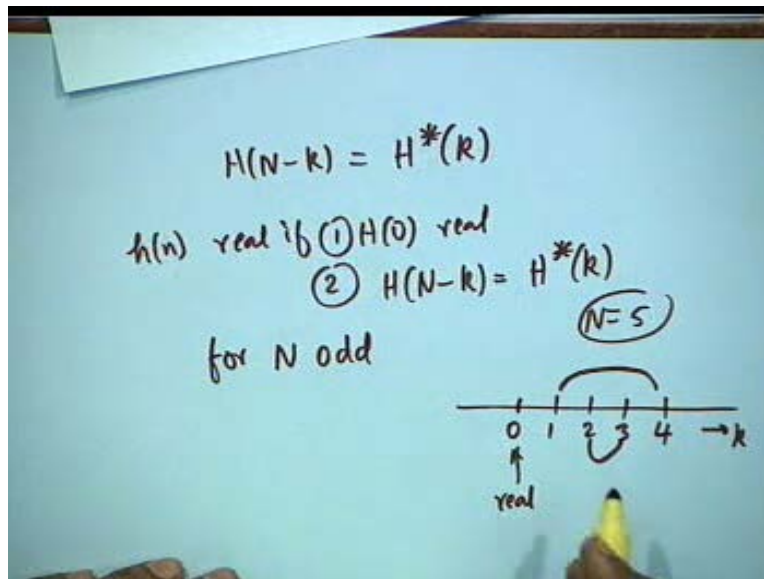 H(N-k) = H*(k)
h(n) real if ① H(0) real
② H(N-k) = H*(k)
for N odd
N=5
0 1 2 3 4 → k
↑
real